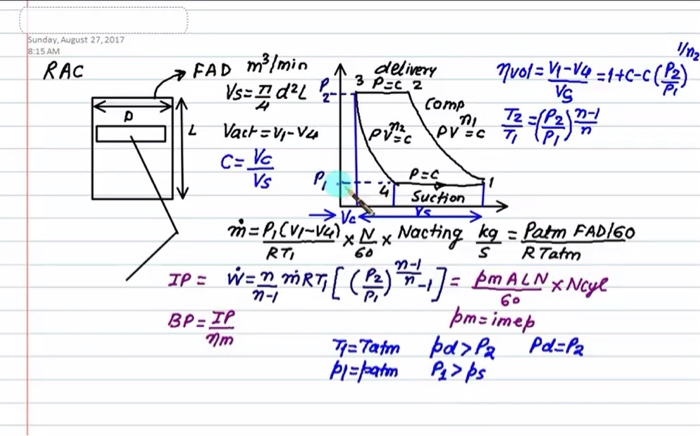 Sunday, August 27, 2017
8:15 AM
RAC
FAD m³/min
Vs = π/4 d²L
Vact = V1 - V4
C = Vc/Vs
D
L
delivery
3 P=c 2
P2
comp
PV^n2=c
PV^n1=c
P1
P=c
4
1
Suction
Vc
Vs
ηvol = (V1-V4)/Vs = 1+C-C(P2/P1)^1/n2
T2/T1 = (P2/P1)^(n-1)/n
ṁ = P1(V1-V4)/RT1 × N/60 × Nacting kg/s = Patm FAD/60 / R Tatm
IP = Ẇ = n/(n-1) ṁRT1 [(P2/P1)^(n-1)/n -1] = pm ALN/60 × Ncyl
BP = IP/ηm
pm = imep
T1 = Tatm pd > P2 Pd = P2
p1 = patm P1 > ps